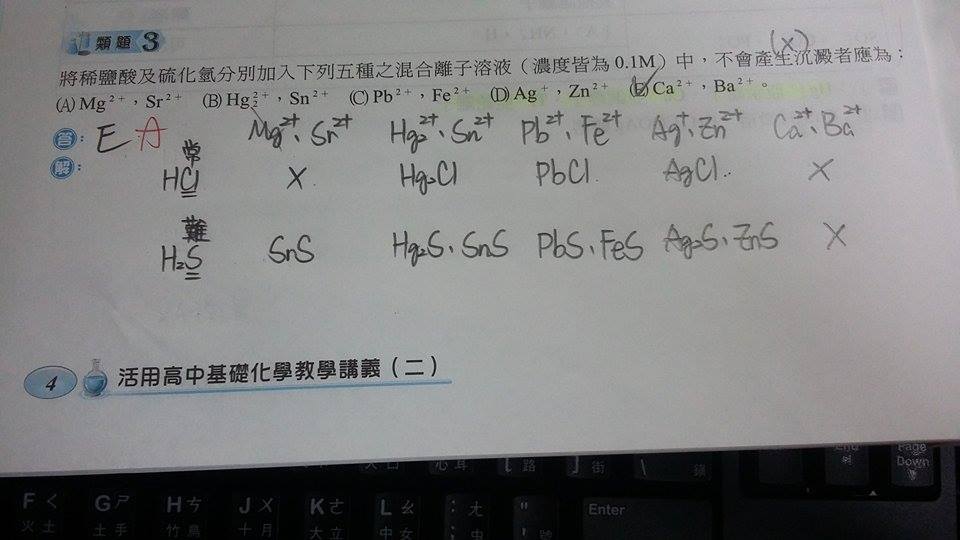 類題 3
(X)
將稀鹽酸及硫化氫分別加入下列五種之混合離子溶液（濃度皆為 0.1M）中，不會產生沉澱者應為：
(A) Mg²⁺，Sr²⁺ (B) Hg₂²⁺，Sn²⁺ (C) Pb²⁺，Fe²⁺ (D) Ag⁺，Zn²⁺ (E) Ca²⁺，Ba²⁺。
答：E A Mg²⁺、Sr²⁺ Hg₂²⁺、Sn²⁺ Pb²⁺、Fe²⁺ Ag⁺、Zn²⁺ Ca²⁺、Ba²⁺
解：
常
HCl X Hg₂Cl PbCl AgCl X
難
H₂S SnS Hg₂S、SnS PbS、FeS Ag₂S、ZnS X
4 活用高中基礎化學教學講義（二）
End
Page Down
F ㄑ 火 土
G ㄕ 土 手
H ㄘ 竹 鳥
J ㄨ 十 月
K ㄜ 大 立
L ㄠ 中 女
Enter